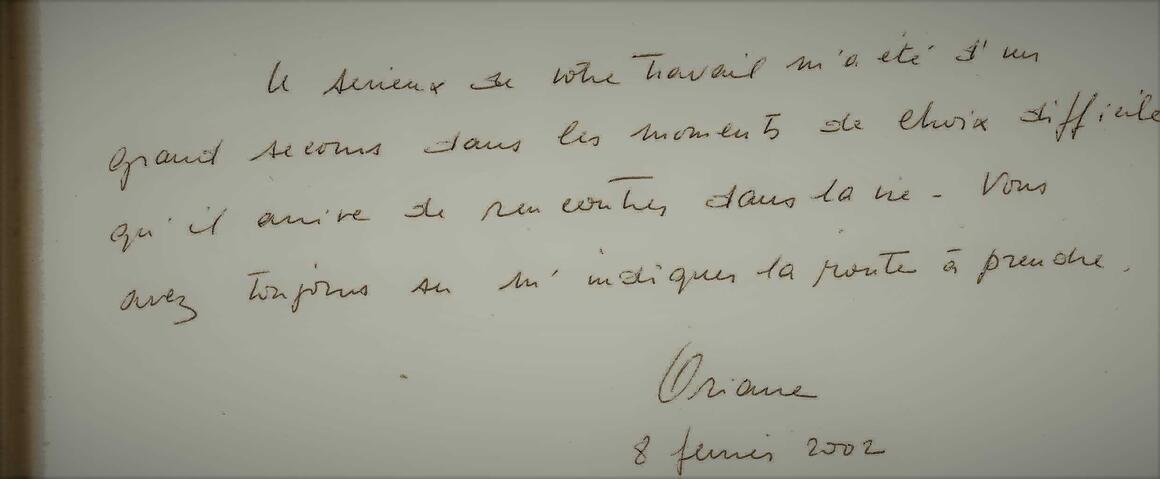 Le serieux de votre travail m'a été d'un
grand secours dans les moments de choix difficile
qu'il arrive de rencontrer dans la vie. Vous
avez toujours su m'indiquer la route à prendre.
Oriane
8 fevrier 2002